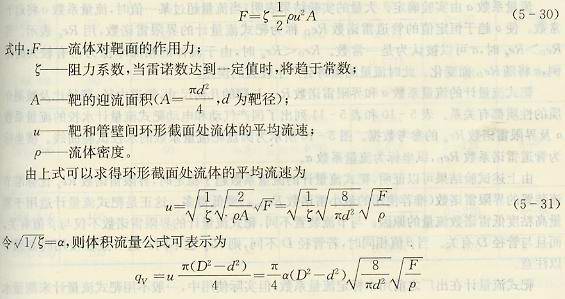 F=ζ 1/2 ρu²A (5-30)
式中:F——流体对靶面的作用力;
ζ——阻力系数,当雷诺数达到一定值时,将趋于常数;
A——靶的迎流面积(A=πd²/4,d为靶径);
u——靶和管壁间环形截面处流体的平均流速;
ρ——流体密度。
由上式可以求得环形截面处流体的平均流速为
u=√(1/ζ)√(2/(ρA))√F=√(1/ζ)√(8/(πd²))√(F/ρ) (5-31)
令√1/ζ=α,则体积流量公式可表示为
qV=u π(D²-d²)/4=π/4 α(D²-d²)√(8/(πd²))√(F/ρ)